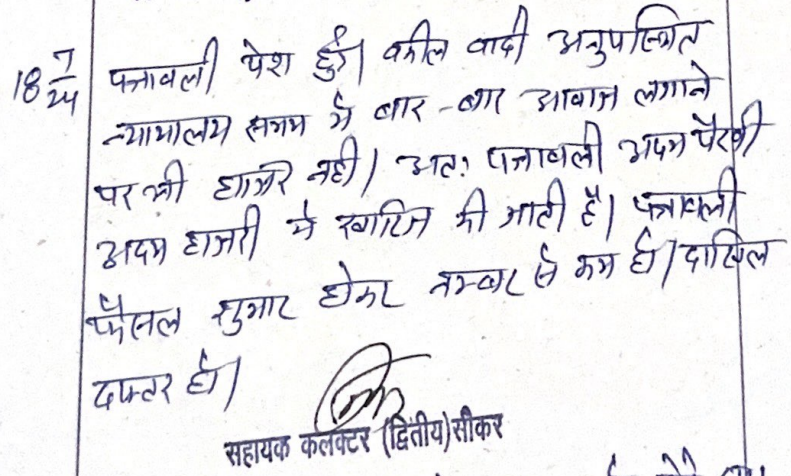 18 7/24 पत्रावली पेश हुई। वकील वादी अनुपस्थित
न्यायालय समय में बार-बार आवाज लगाने
पर भी हाजिर नहीं। अतः पत्रावली अदम पैरवी
अदम हाजरी में खारिज की जाती है। पत्रावली
फैसल शुमार होकर नम्बर से कम हो। दाखिल
दफ्तर हो।
सहायक कलक्टर (द्वितीय) सीकर